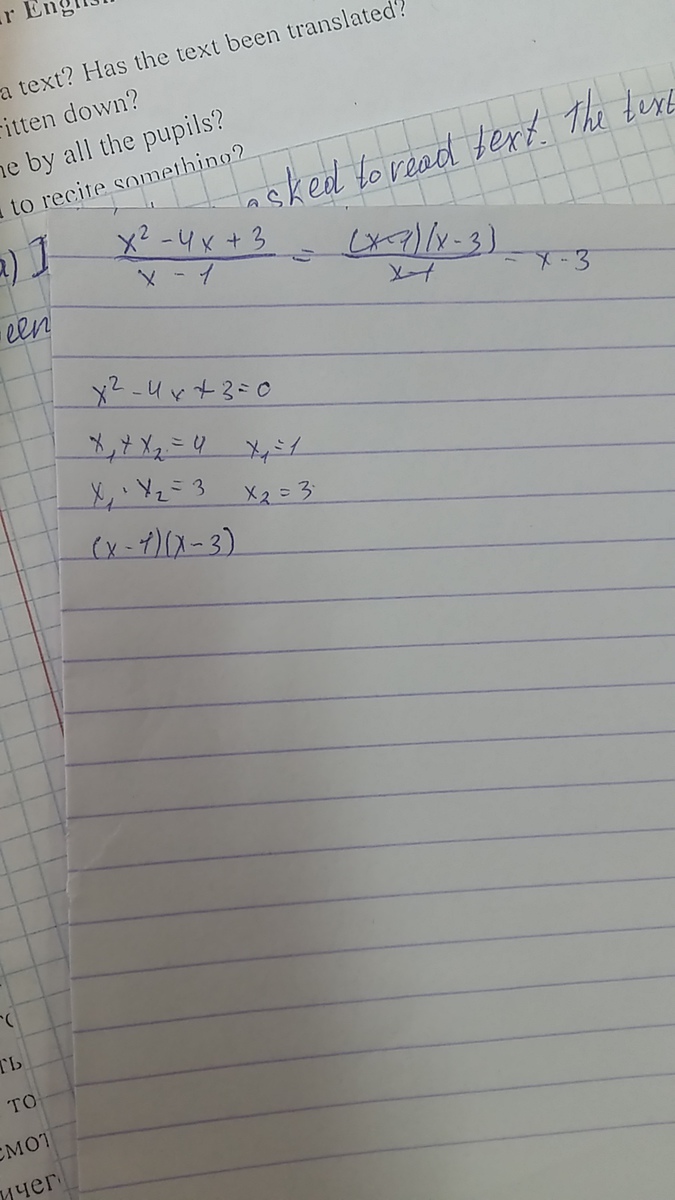 r English
a text? Has the text been translated?
ritten down?
ne by all the pupils?
to recite something?
asked to read text. The text
a) I
een
x² - 4x + 3 / x - 1 = (x-1)(x-3) / x-1 - x - 3
x² - 4x + 3 = 0
x₁ + x₂ = 4 x₁ = 1
x₁ · x₂ = 3 x₂ = 3
(x - 1)(x - 3)
ть
то
смот
ичег